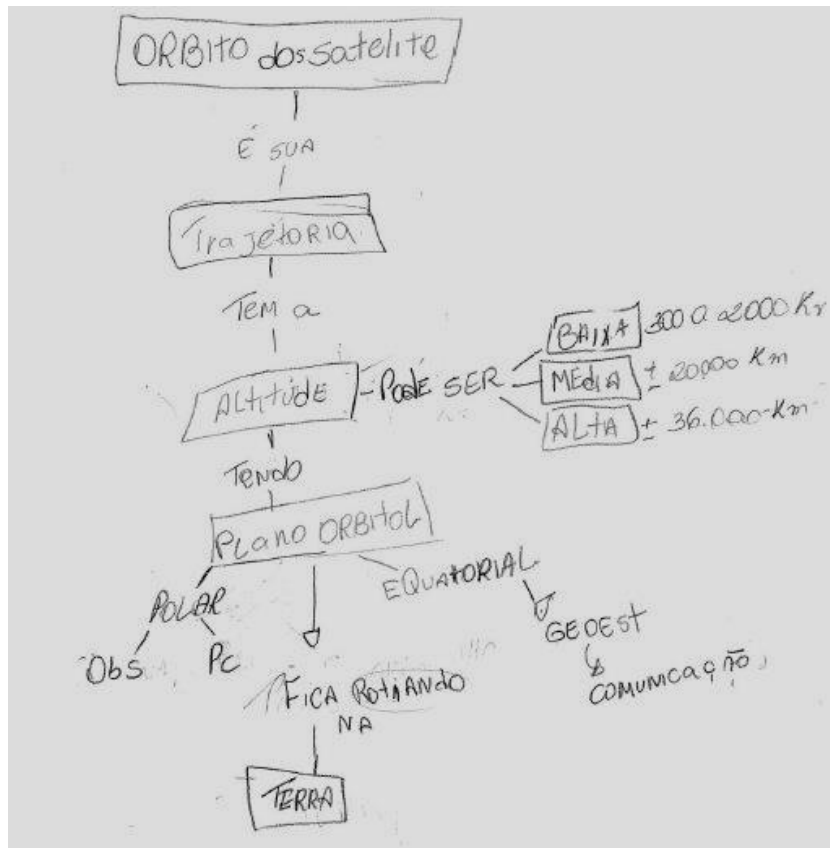 ORBITO dos Satelite
É SUA
TrajetORIA
TEM a
ALtitUdE - PodE SER
BAIXA 300 a 2000 Km
MÉdIA ± 20000 Km
ALtA ± 36.000 Km
TENdO
PLANO ORBITOL
POLAR
EQUATORIAL
Obs
Pc
GEOEST
COMUNICAÇÃO
FICA
NA
TERRA